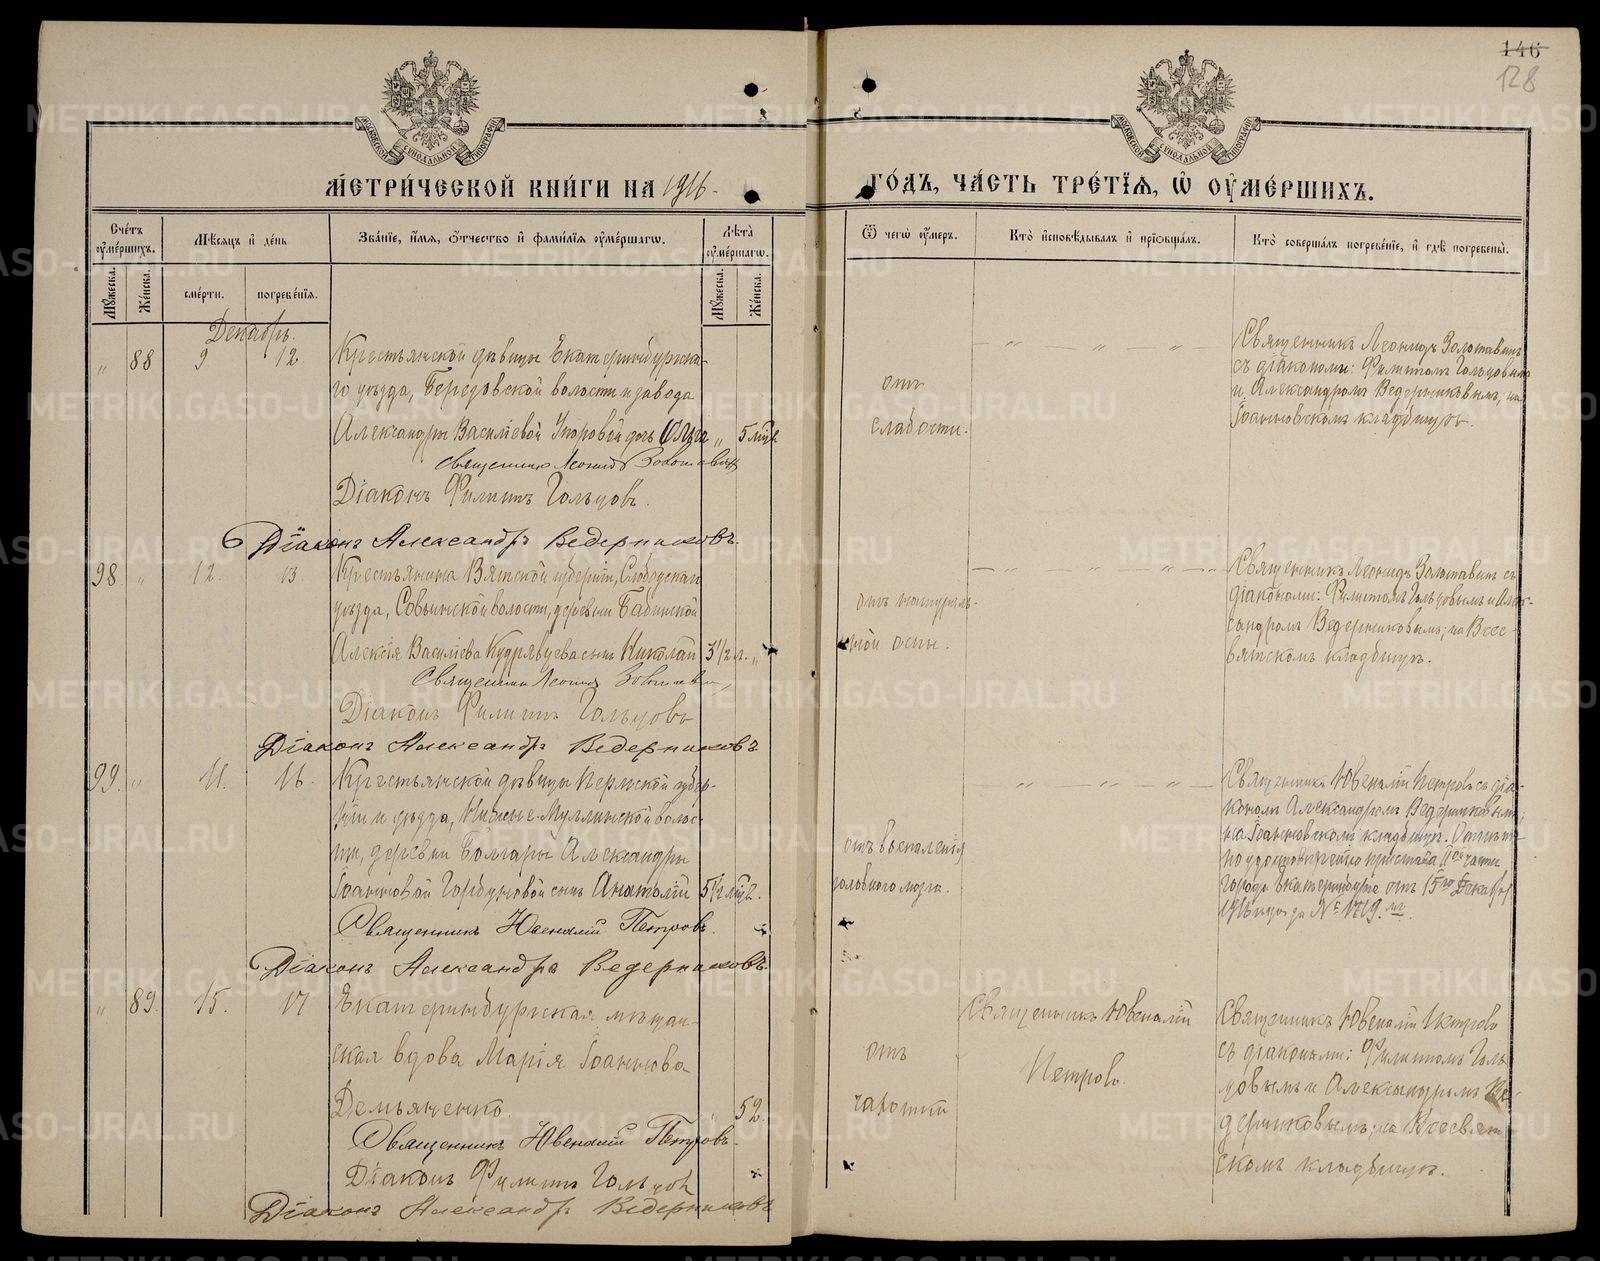 146
128
МОСКОВСКОЙ СѴНОДАЛЬНОЙ ТИПОГРАФІИ
МОСКОВСКОЙ СѴНОДАЛЬНОЙ ТИПОГРАФІИ
МЕТРИ́ЧЕСКОЙ КНИ́ГИ НА 1916 ГО́ДЪ, ЧА́СТЬ ТРЕ́ТЇѦ, Ѡ҆ ОУ҆МЕ́РШИХЪ.
Сче́тъ оу҆ме́ршихъ.
Мꙋ́жеска.
Же́нска.
Мѣ́сѧцъ и҆ де́нь
сме́рти.
погребе́нїѧ.
Зва́нїе, и҆́мѧ, ѻ҆́тчество и҆ фами́лїѧ оу҆ме́ршагѡ.
Лѣта̀ оу҆ме́ршагѡ.
Мꙋ́жеска.
Же́нска.
Ѿ чегѡ̀ оу҆́меръ.
Кто̀ и҆сповѣ́дывалъ и҆ прїѡбща́лъ.
Кто̀ соверша́лъ погребе́нїе, и҆ гдѣ̀ погребены̀.
Декабрь.
„ 88 9 12.
Крестьянской дѣвицы Екатеринбургска-
го уѣзда, Березовской волости и завода
Александры Василіевой Упоровой дочь Ольга „ 5 мцъ
Священникъ Леонидъ Золотавинъ
Діаконъ Филиппъ Гольцовъ.
Діаконъ Александръ Ведерниковъ.
отъ
слабости.
— „ — „ — „ —
Священникъ Леонидъ Золотавинъ
съ діаконами: Филиппомъ Гольцовымъ
и Александромъ Ведерниковымъ, на
Іоанновскомъ кладбищѣ.
98 „ 12. 13.
Крестьянина Вятской губерніи, Слободскаго
уѣзда, Совьинской волости, деревни Бабинской
Алексія Василіева Кудрявцева сынъ Николай 3 1/2 г. „
Священникъ Леонидъ Золотавинъ
Діаконъ Филиппъ Гольцовъ
Діаконъ Александръ Ведерниковъ
отъ натураль-
ной оспы.
— „ — „ — „ —
Священникъ Леонидъ Золотавинъ съ
діаконами: Филиппомъ Гольцовымъ и Алек-
сандромъ Ведерниковымъ; на Всес-
вятскомъ кладбищѣ.
99. „ 11. 16.
Крестьянской дѣвицы Пермской губер-
ніи и уѣзда, Нижне-Муллинской волос-
ти, деревни Болгары Александры
Іоанновой Горбуновой сынъ Анатолій 5 1/2 мцъ.
Священникъ Ювеналій Петровъ.
Діаконъ Александръ Ведерниковъ.
отъ воспаленія
головного мозга.
— „ — „ — „ —
Священникъ Ювеналій Петровъ съ діа-
кономъ Александромъ Ведерниковымъ,
на Іоанновскомъ кладбищѣ.
пристава II части
города Екатеринбурга отъ 15го Декабря
1916 года за № 1719.мъ
„ 89. 15. 17
Екатеринбургская мѣщан-
ская вдова Марія Іоаннова
Демьяненко. „ 52.
Священникъ Ювеналій Петровъ.
Діаконъ Филиппъ Гольцовъ
Діаконъ Александръ Ведерниковъ
отъ
чахотки
Священникъ Ювеналій
Петровъ.
Священникъ Ювеналій Петровъ
съ діаконами: Филиппомъ Голь-
цовымъ и Александромъ Ве-
дерниковымъ; на Всесвят-
скомъ кладбищѣ.
METRIKI.GASO-URAL.RU